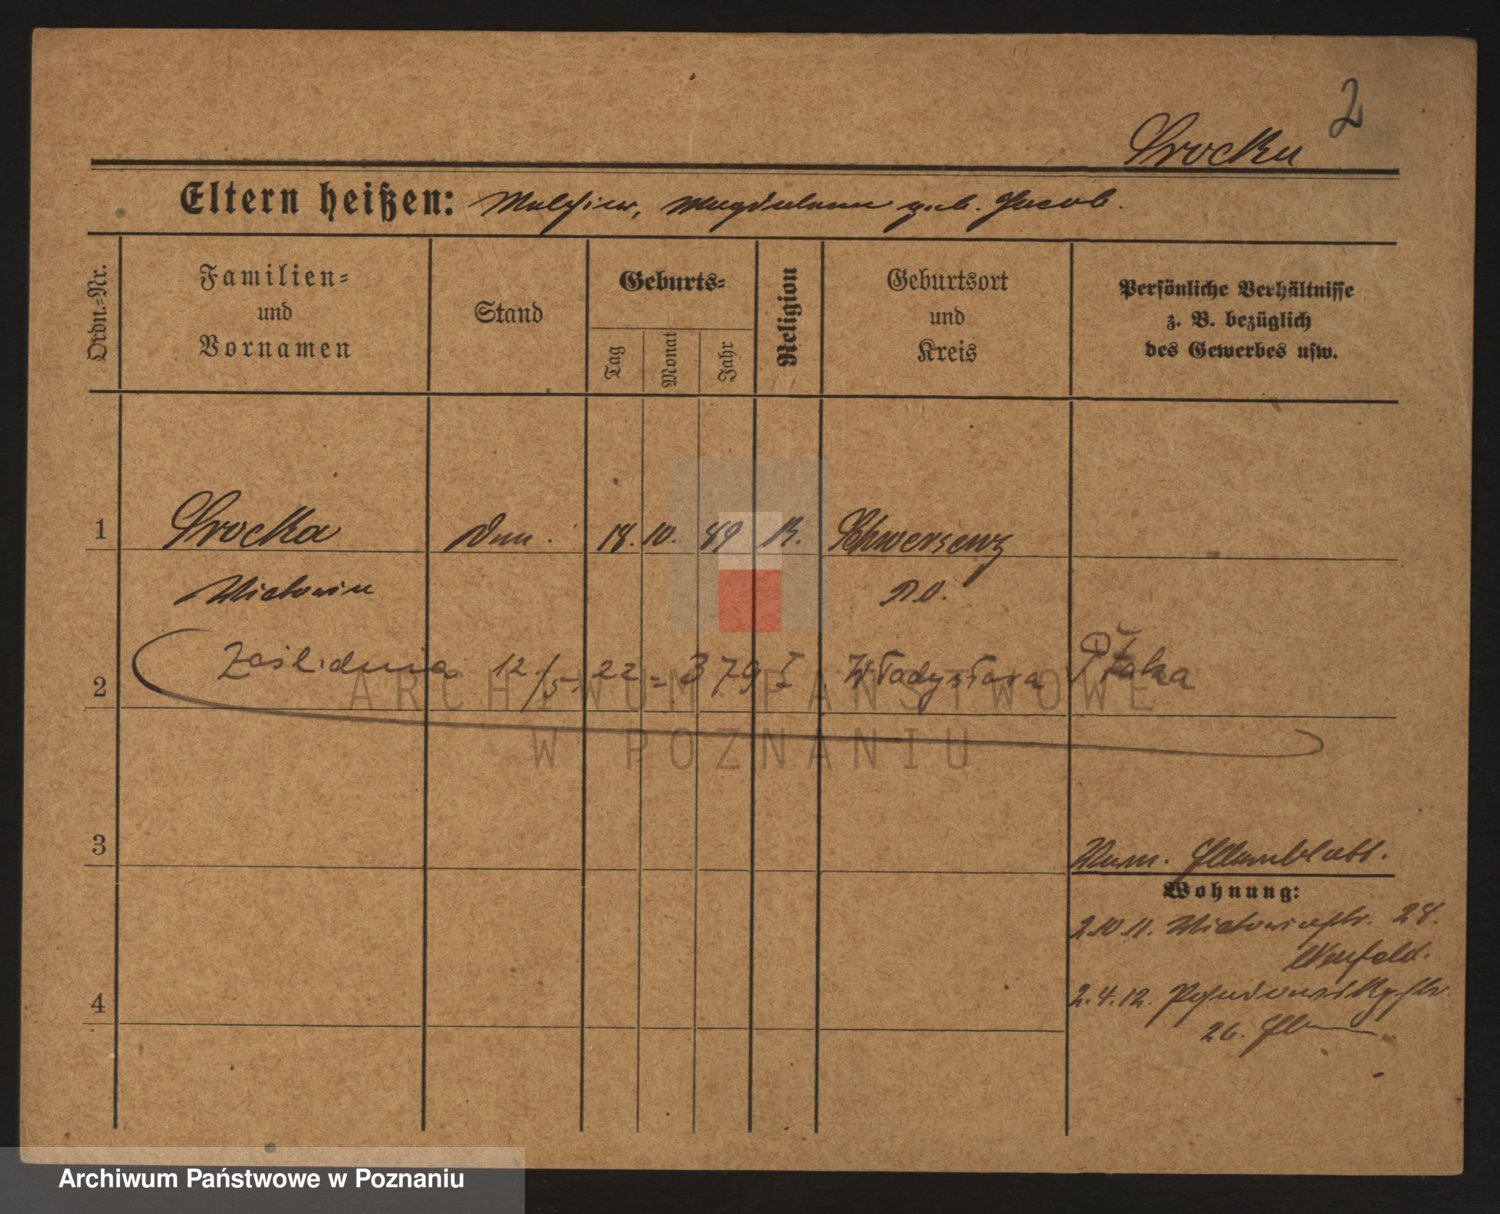 2
Srocka
Eltern heißen: Melchior, Magdalena geb. Jacob.
Ordn.-Nr.
Familien-
und
Vornamen
Stand
Geburts-
Tag
Monat
Jahr
Religion
Geburtsort
und
Kreis
Persönliche Verhältnisse
z. B. bezüglich
des Gewerbes usw.
1 Srocka 18. 10. 89 K. Schwersenz
Victoria P. O.
2 Zaślubiona 12/5. 22 = 379 I Władysława
3
Elternblatt.
Wohnung:
2.10.11. Victoriastr. 28.
4
2.4.12.
26.
ARCHIWUM PAŃSTWOWE
W POZNANIU
Archiwum Państwowe w Poznaniu